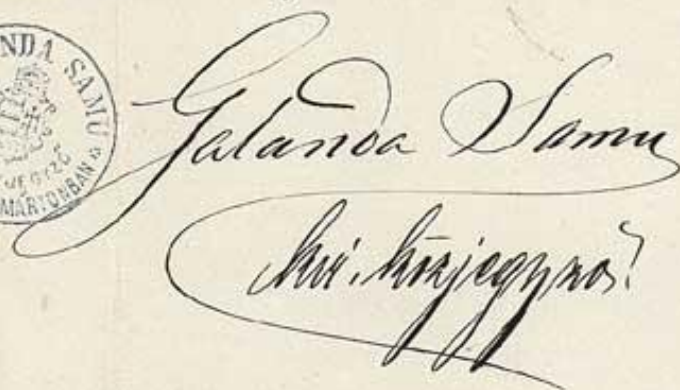 NDA SAMU
MARTONBAN
Galanda Samu
kir. közjegyző